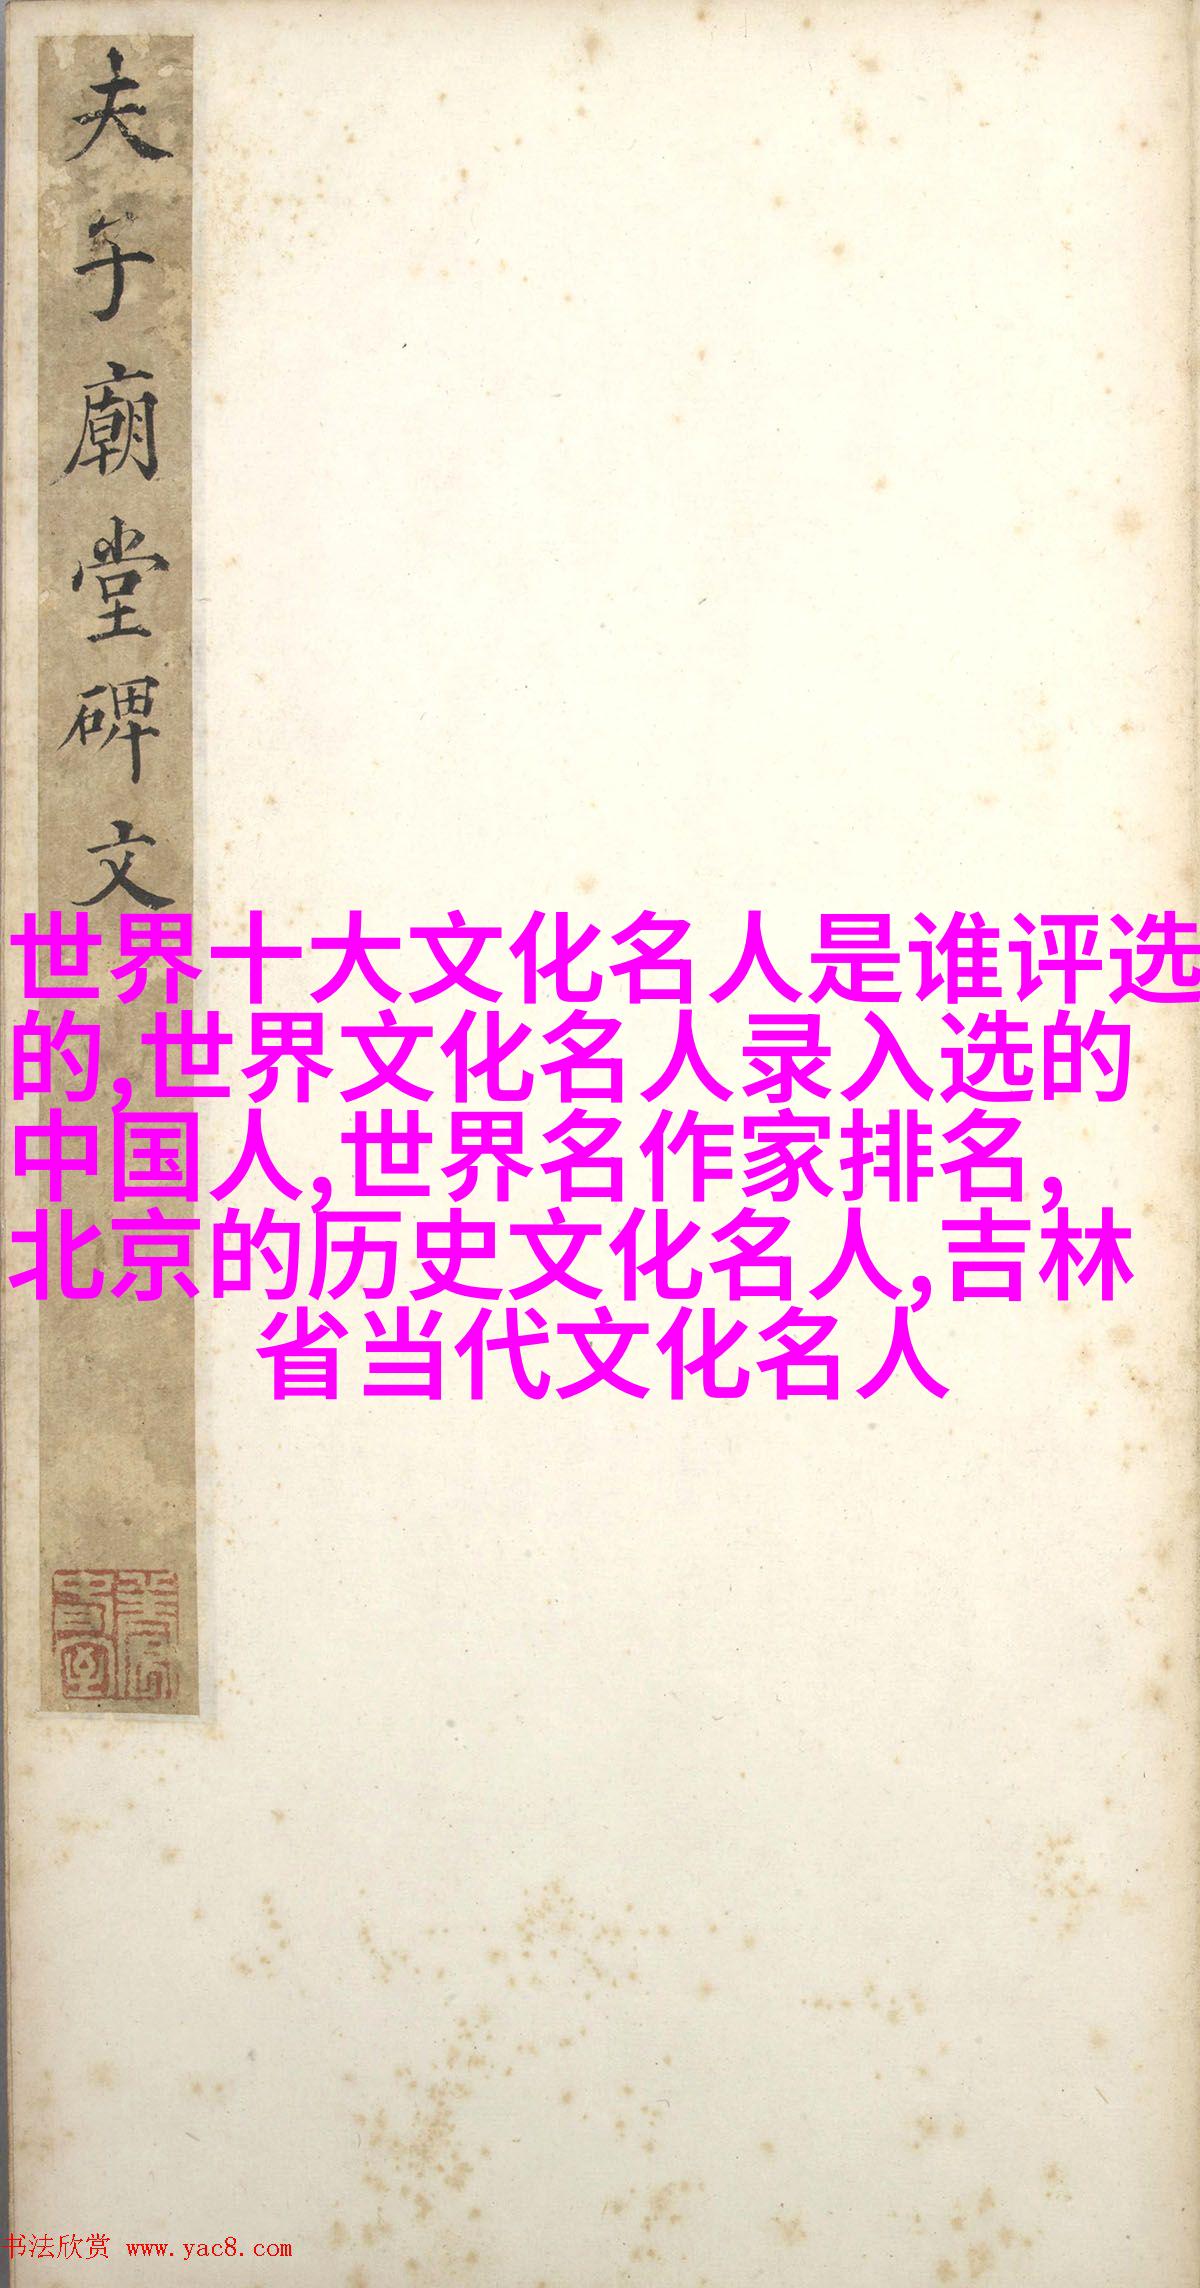 夫子廟堂碑文
世界十大文化名人是谁评选
的,世界文化名人录入选的
中国人,世界名作家排名,
北京的历史文化名人,吉林
省当代文化名人
书法欣赏 www.yac8.com